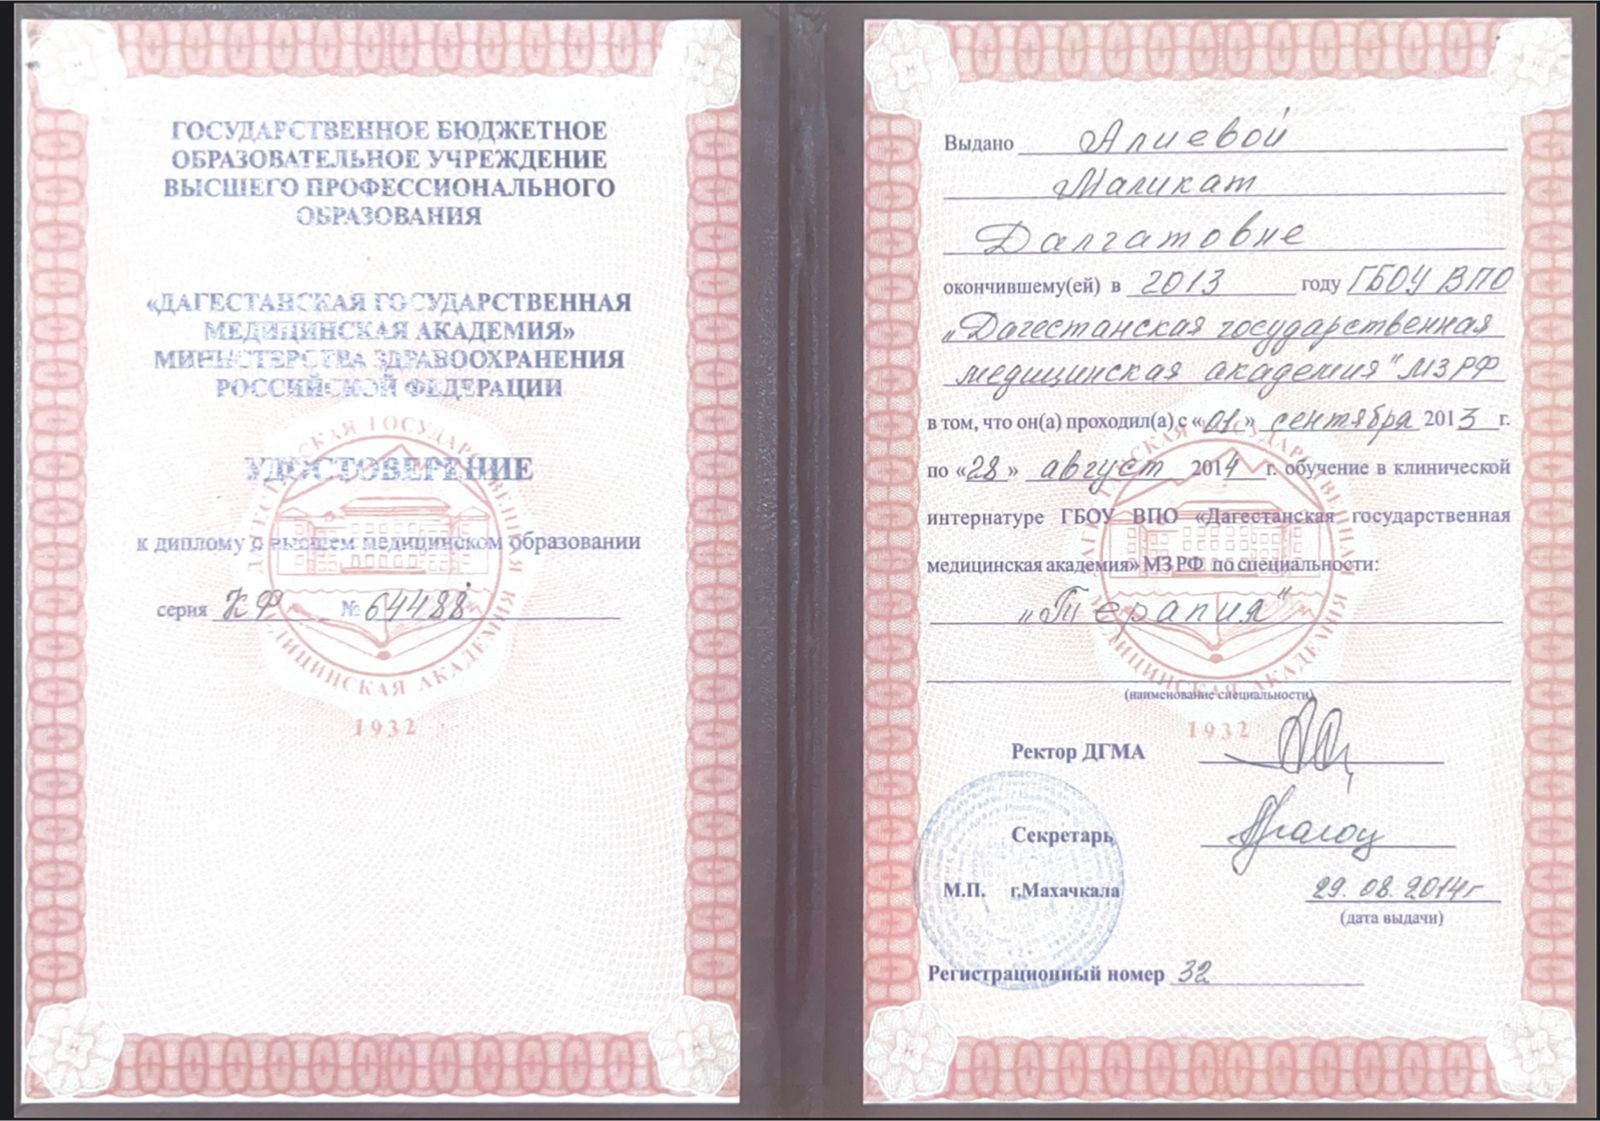 ГОСУДАРСТВЕННОЕ БЮДЖЕТНОЕ
ОБРАЗОВАТЕЛЬНОЕ УЧРЕЖДЕНИЕ
ВЫСШЕГО ПРОФЕССИОНАЛЬНОГО
ОБРАЗОВАНИЯ
«ДАГЕСТАНСКАЯ ГОСУДАРСТВЕННАЯ
МЕДИЦИНСКАЯ АКАДЕМИЯ»
МИНИСТЕРСТВА ЗДРАВООХРАНЕНИЯ
РОССИЙСКОЙ ФЕДЕРАЦИИ
УДОСТОВЕРЕНИЕ
к диплому о высшем медицинском образовании
серия КФ № 64488
ДАГЕСТАНСКАЯ ГОСУДАРСТВЕННАЯ МЕДИЦИНСКАЯ АКАДЕМИЯ
1932
Выдано Алиевой
Маликат
Далгатовне
окончившему(ей) в 2013 году ГБОУ ВПО
"Дагестанская государственная
медицинская академия" МЗ РФ
в том, что он(а) проходил(а) с «01» сентября 2013 г.
по «28» август 2014 г. обучение в клинической
интернатуре ГБОУ ВПО «Дагестанская государственная
медицинская академия» МЗ РФ по специальности:
"Терапия"
(наименование специальности)
ДАГЕСТАНСКАЯ ГОСУДАРСТВЕННАЯ МЕДИЦИНСКАЯ АКАДЕМИЯ
1932
Ректор ДГМА
Секретарь
М.П. г.Махачкала
29.08.2014г
(дата выдачи)
Регистрационный номер 32